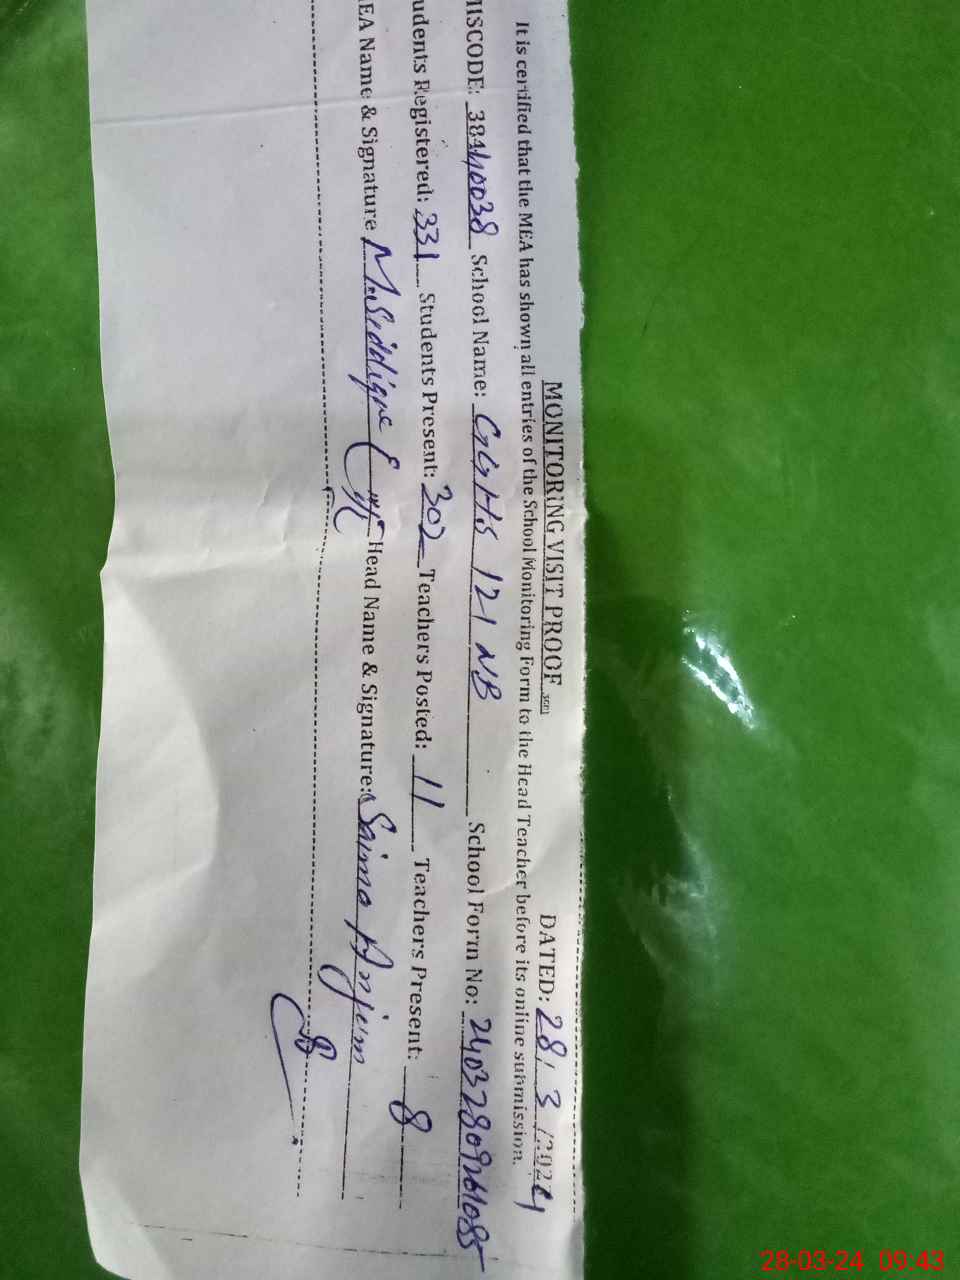 MONITORING VISIT PROOF DATED: 28/3/2024
It is certified that the MEA has shown all entries of the School Monitoring Form to the Head Teacher before its online submission.
MISCODE: 38440038 School Name: GGHS 121 NB School Form No: 24032809261085
udents Registered: 331 Students Present: 302 Teachers Posted: 11 Teachers Present: 8
EA Name & Signature M.Siddique Head Name & Signature: Saima Anjum
28-03-24 09:43